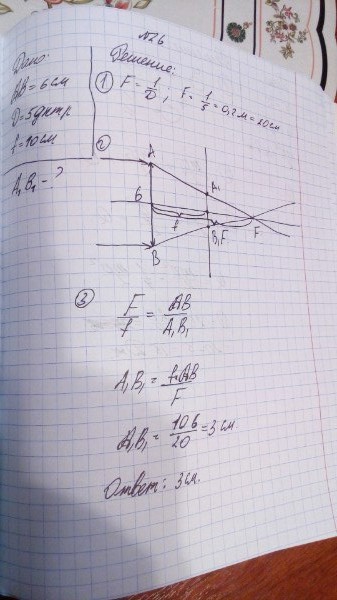 №26
Дано:
AB = 6 см
D = 5 дптр
f = 10 см
A₁B₁ - ?
Решение:
① F = 1/D ; F = 1/5 = 0,2 м = 20 см
②
A
A₁
6
f
F
B₁
F
B
③
F/f = AB/A₁B₁
A₁B₁ = f·AB/F
A₁B₁ = 10·6/20 = 3 см
Ответ: 3 см.